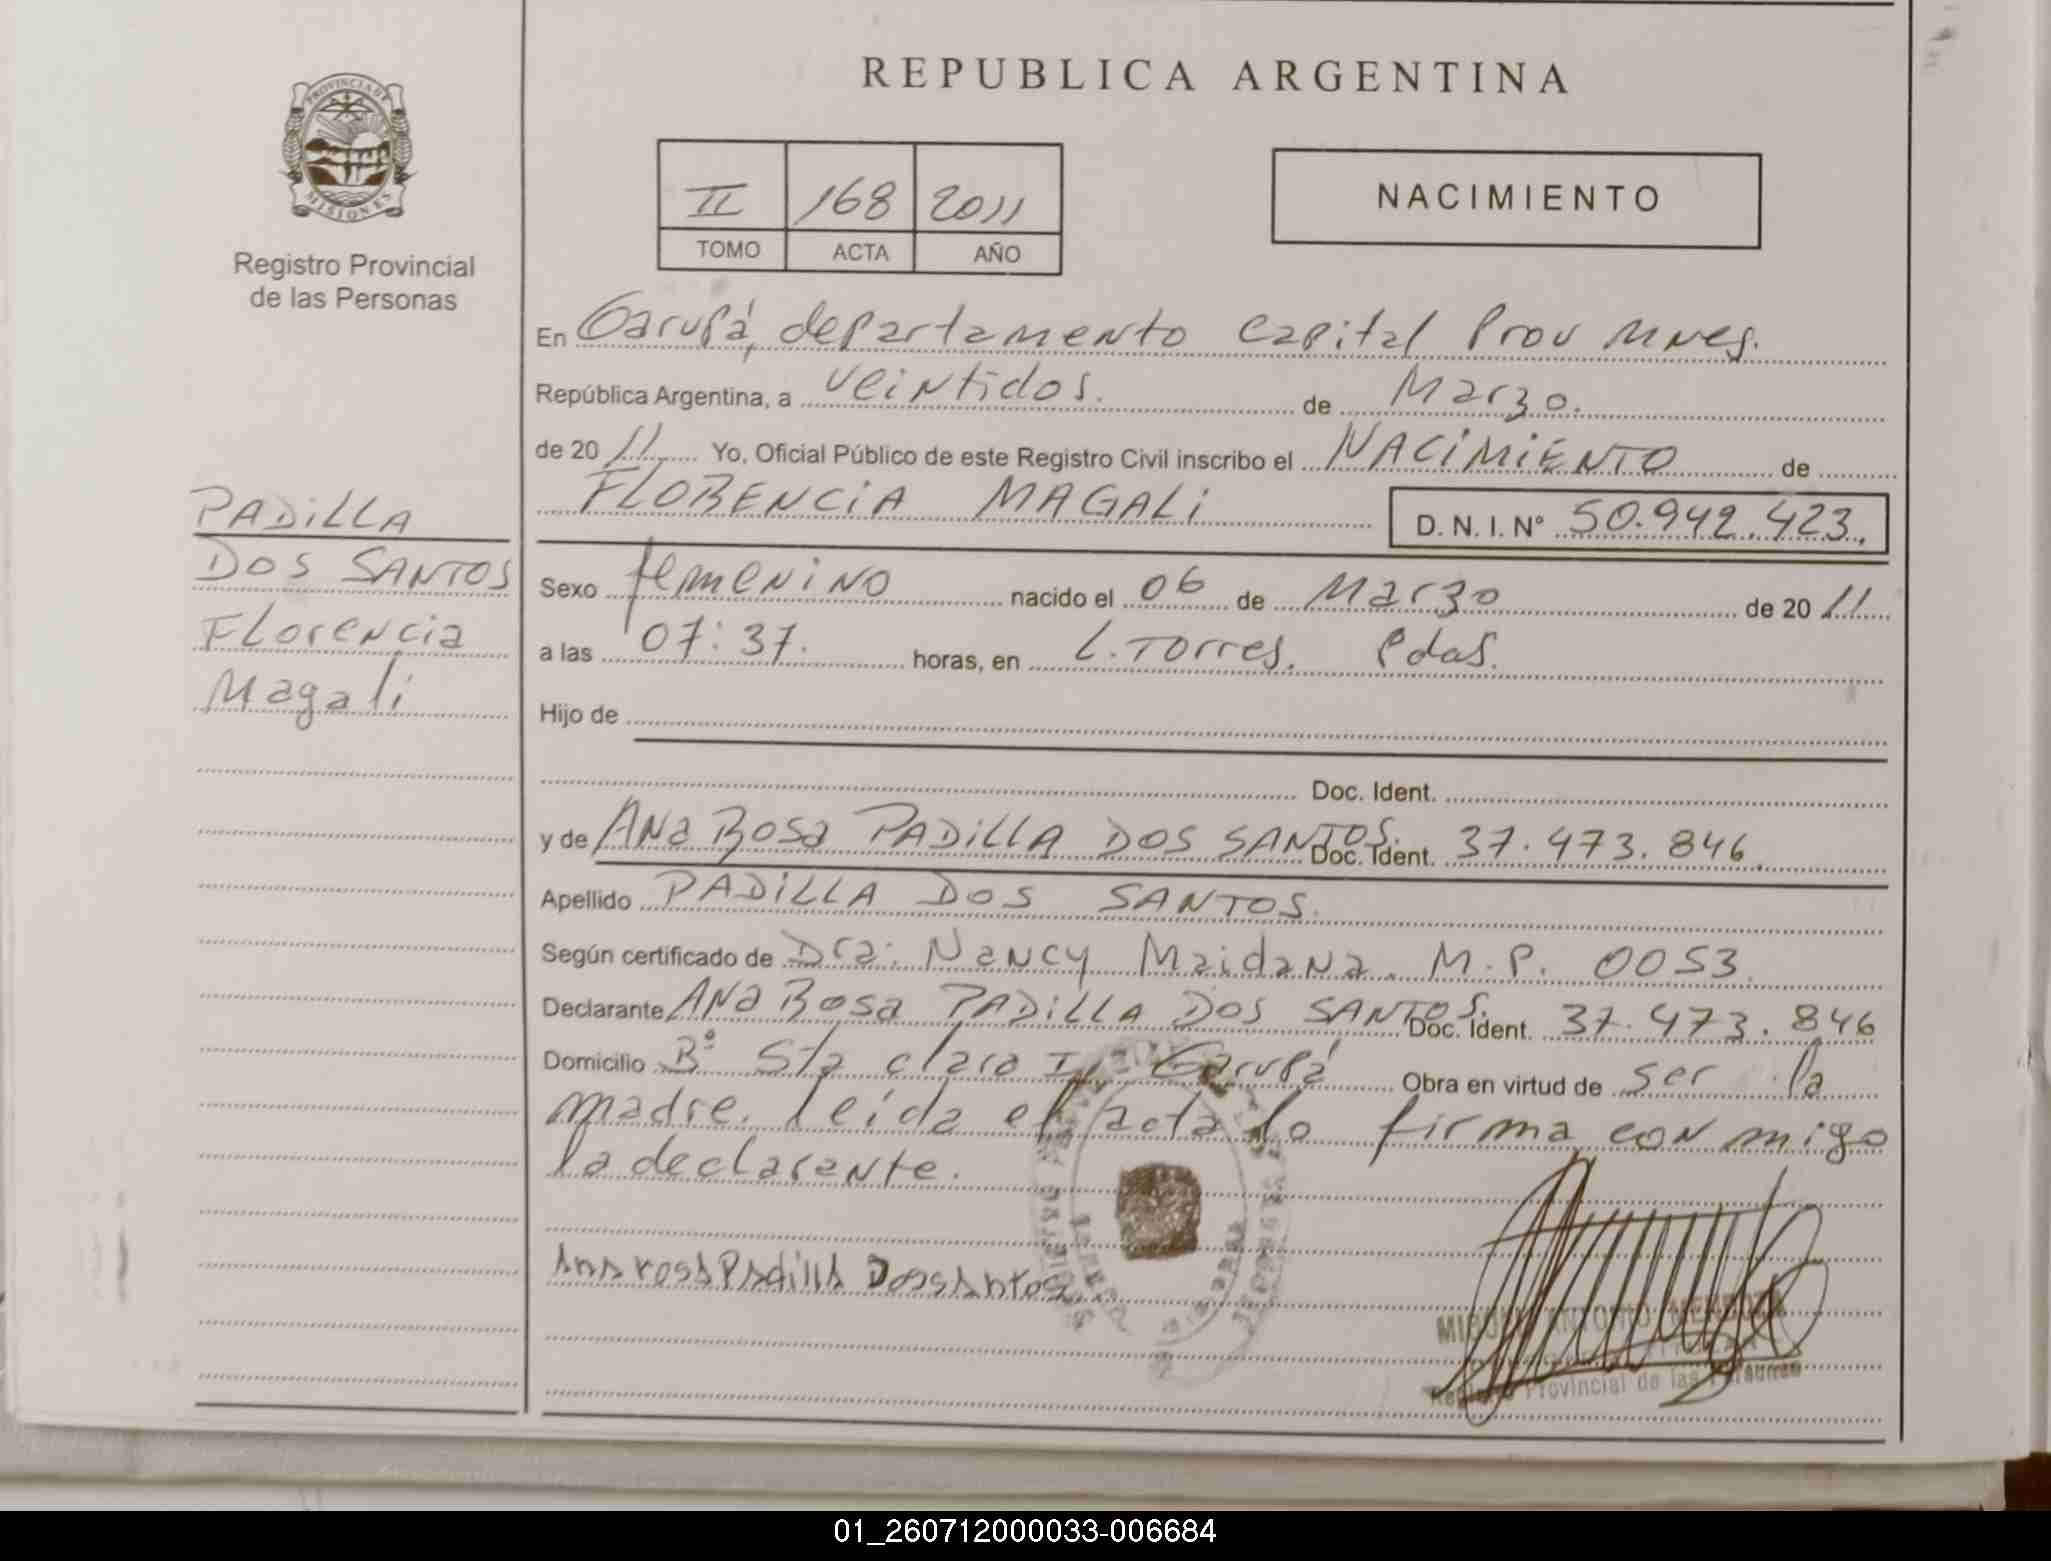 REPUBLICA ARGENTINA
PROVINCIA DE
MISIONES
Registro Provincial
de las Personas
II 168 2011
TOMO ACTA AÑO
NACIMIENTO
En Garupá, departamento Capital Prov Mnes.
República Argentina, a veintidos. de Marzo.
de 20 11 Yo, Oficial Público de este Registro Civil inscribo el NACIMIENTO de
FLORENCIA MAGALI D. N. I. Nº 50.942.423.
PADILLA
DOS SANTOS
Florencia
Magali
Sexo femenino nacido el 06 de Marzo de 20 11
a las 07:37. horas, en L. Torres. Pdas.
Hijo de
Doc. Ident.
y de Ana Rosa PADILLA DOS SANTOS. Doc. Ident. 37.473.846.
Apellido PADILLA DOS SANTOS.
Según certificado de Dra. Nancy Maidana. M.P. 0053.
Declarante Ana Rosa PADILLA DOS SANTOS. Doc. Ident. 37.473.846
Domicilio Bº Sta Clara I, Garupá Obra en virtud de ser la
madre. leida el acta lo firma con migo
la declarante.
Ana rosa Padilla Dossantos
MIGUEL ANTONIO MENDOZA
Registro Provincial de las Personas
01_260712000033-006684